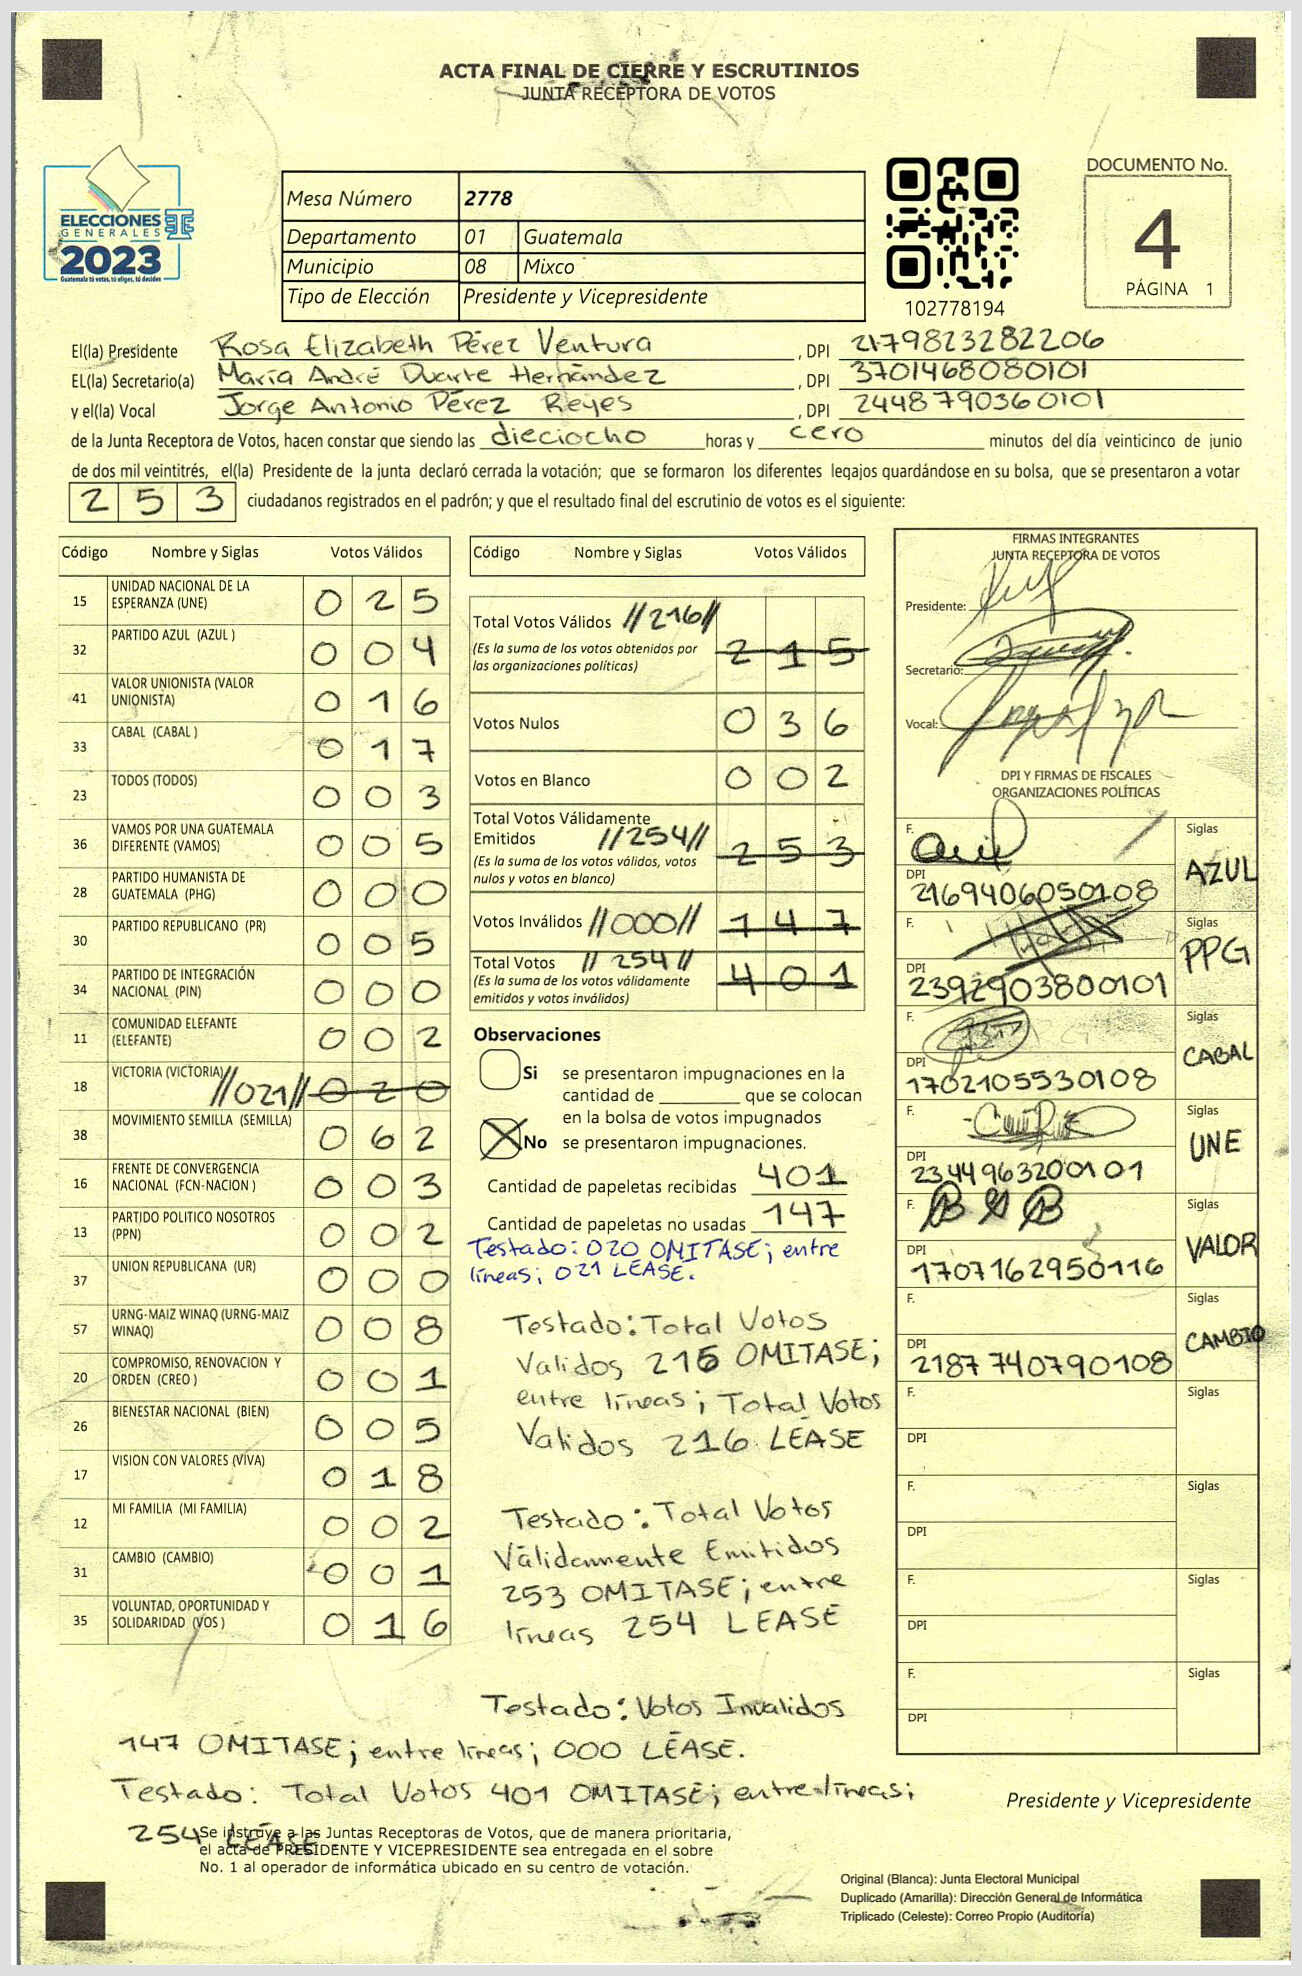 ACTA FINAL DE CIERRE Y ESCRUTINIOS
JUNTA RECEPTORA DE VOTOS
ELECCIONES
GENERALES
2023
Guatemala tú votas, tú eliges, tú decides
Mesa Número 2778
Departamento 01 Guatemala
Municipio 08 Mixco
Tipo de Elección Presidente y Vicepresidente
102778194
DOCUMENTO No.
4
PÁGINA 1
El(la) Presidente Rosa Elizabeth Pérez Ventura , DPI 2179823282206
EL(la) Secretario(a) María André Duarte Hernández , DPI 3701468080101
y el(la) Vocal Jorge Antonio Pérez Reyes , DPI 2448790360101
de la Junta Receptora de Votos, hacen constar que siendo las dieciocho horas y cero minutos del día veinticinco de junio
de dos mil veintitrés, el(la) Presidente de la junta declaró cerrada la votación; que se formaron los diferentes legajos guardándose en su bolsa, que se presentaron a votar
253 ciudadanos registrados en el padrón; y que el resultado final del escrutinio de votos es el siguiente:
Código Nombre y Siglas Votos Válidos
15 UNIDAD NACIONAL DE LA ESPERANZA (UNE) 025
32 PARTIDO AZUL (AZUL ) 004
41 VALOR UNIONISTA (VALOR UNIONISTA) 016
33 CABAL (CABAL ) 017
23 TODOS (TODOS) 003
36 VAMOS POR UNA GUATEMALA DIFERENTE (VAMOS) 005
28 PARTIDO HUMANISTA DE GUATEMALA (PHG) 000
30 PARTIDO REPUBLICANO (PR) 005
34 PARTIDO DE INTEGRACIÓN NACIONAL (PIN) 000
11 COMUNIDAD ELEFANTE (ELEFANTE) 002
18 VICTORIA (VICTORIA) //021// 020
38 MOVIMIENTO SEMILLA (SEMILLA) 062
16 FRENTE DE CONVERGENCIA NACIONAL (FCN-NACION ) 003
13 PARTIDO POLITICO NOSOTROS (PPN) 002
37 UNION REPUBLICANA (UR) 000
57 URNG-MAIZ WINAQ (URNG-MAIZ WINAQ) 008
20 COMPROMISO, RENOVACION Y ORDEN (CREO ) 001
26 BIENESTAR NACIONAL (BIEN) 005
17 VISION CON VALORES (VIVA) 018
12 MI FAMILIA (MI FAMILIA) 002
31 CAMBIO (CAMBIO) 001
35 VOLUNTAD, OPORTUNIDAD Y SOLIDARIDAD (VOS ) 016
Código Nombre y Siglas Votos Válidos
Total Votos Válidos //216// 215
(Es la suma de los votos obtenidos por
las organizaciones políticas)
Votos Nulos 036
Votos en Blanco 002
Total Votos Válidamente
Emitidos //254// 253
(Es la suma de los votos válidos, votos
nulos y votos en blanco)
Votos Inválidos //000// 147
Total Votos //254// 401
(Es la suma de los votos válidamente
emitidos y votos inválidos)
Observaciones
Si se presentaron impugnaciones en la
cantidad de ________ que se colocan
en la bolsa de votos impugnados
No se presentaron impugnaciones.
Cantidad de papeletas recibidas 401
Cantidad de papeletas no usadas 147
Testado: 020 OMITASE; entre
líneas; 021 LEASE.
Testado: Total Votos
Validos 215 OMITASE;
entre líneas; Total Votos
Validos 216 LEASE
Testado: Total Votos
Válidamente Emitidos
253 OMITASE; entre
líneas 254 LEASE
Testado: Votos Invalidos
147 OMITASE; entre líneas; 000 LÉASE.
Testado: Total Votos 401 OMITASE; entre líneas;
254 LEASE
Se instruye a las Juntas Receptoras de Votos, que de manera prioritaria,
el acta de PRESIDENTE Y VICEPRESIDENTE sea entregada en el sobre
No. 1 al operador de informática ubicado en su centro de votación.
FIRMAS INTEGRANTES
JUNTA RECEPTORA DE VOTOS
Presidente:
Secretario:
Vocal:
DPI Y FIRMAS DE FISCALES
ORGANIZACIONES POLÍTICAS
F. Siglas
DPI 2169406050108 AZUL
F. Siglas
DPI 2392903800101 PPG
F. Siglas
DPI 1702105530108 CABAL
F. Siglas
DPI 2344963200101 UNE
F. Siglas
DPI 1707162950116 VALOR
F. Siglas
DPI 2187740790108 CAMBIO
F. Siglas
DPI
F. Siglas
DPI
F. Siglas
DPI
F. Siglas
DPI
Presidente y Vicepresidente
Original (Blanca): Junta Electoral Municipal
Duplicado (Amarilla): Dirección General de Informática
Triplicado (Celeste): Correo Propio (Auditoría)